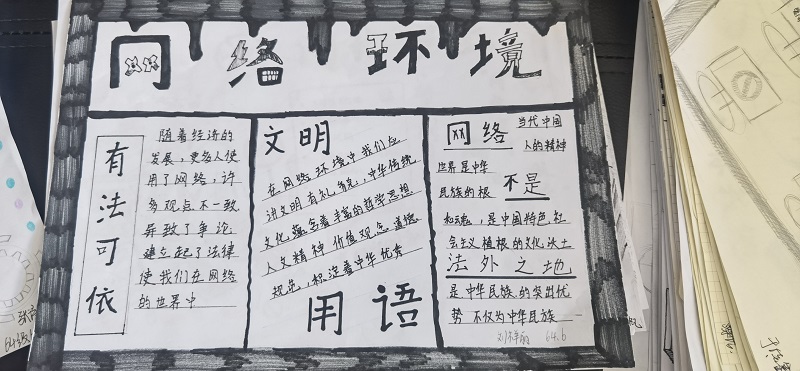 网络环境
有法可依
随着经济的
发展,更多人使
用了网络,许
多观点不一致
导致了争论
建立起了法律
使我们在网络
的世界中
文明
在网络环境中我们应
讲文明有礼貌,中华传统
文化蕴含着丰富的哲学思想
人文精神 价值观念 道德
规范,积淀着中华优秀
用语
网络 当代中国
人的精神
世界是中华
民族的根 不是
和魂,是中国特色社
会主义植根的文化沃土
法外之地
是中华民族的突出优
势 不仅为中华民族
64.6